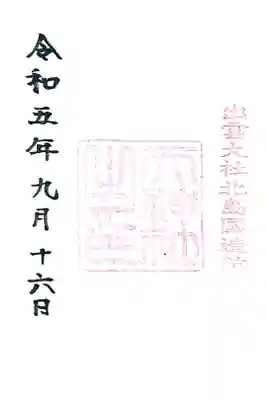 出雲大社北島國造館
令和五年九月十六日